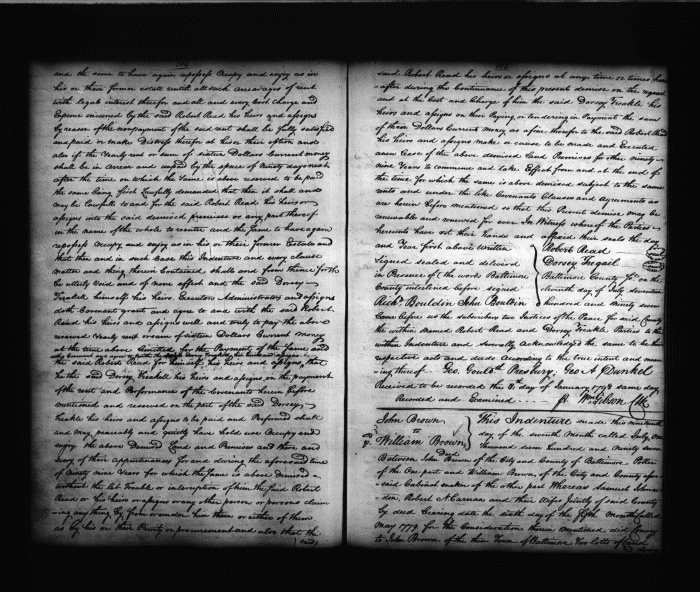 and the same to have again repossess Occupy and enjoy as in
his or their former estate until all such arrearages of rent
with legal interest therefor and all and every cost charge and
Expence incurred by the said Robert Read his heirs and assigns
by reason of the nonpayment of the said rent shall be fully satisfied
and paid or make Distress therefor at his or their option and
also if the Yearly rent or sum of sixteen Dollars Current money
shall be in Arrear and unpaid by the space of Ninety days next
after the time on which the same is above reserved to be paid
the same being first lawfully demanded that then it shall and
may be lawfull to and for the said Robert Read his heirs or
assigns into the said demised premises or any part thereof
in the name of the whole to reenter and the same to have again
repossess Occupy and enjoy as in his or their former Estate and
that then and in such Case this Indenture and every clause
matter and thing therein Contained shall and from thence forth
be utterly Void and of none effect and the said Dorsey
Treakle himself his heirs Executors Administrators and assigns
doth Covenant grant and agree to and with the said Robert
Read his heirs and assigns well and truly to pay the above
reserved Yearly rent or sum of sixteen Dollars Current money
at the time above limitted for the Payment of the same and
the said Robert Read for himself his heirs and assigns, that
he the said Dorsey Treakell his heirs and assigns, on the payment
of the rent and Performance of the Covenants herein before
mentioned and reserved on the part of the said Dorsey
Treakle his heirs and assigns to be paid and Performed shall
and may peaceably and quietly have hold use Occupy and
enjoy the above Demised Land and Premises and there and
every of their appurtenances for and during the aforesaid time
of Ninety nine Years for which the same is above demised
without the let Trouble or interruption of him the said Robert
Read or his heirs or assigns or any other person or persons claim
ing any thing by from or under him them or either of them
as by his or their Privity or procurement and also that the
said
said Robert Read his heirs or assigns at any time or times here
after during the Continuance of this present demise on the request
and at the Cost and Charge of him the said Dorsey Treakle his
heirs and assigns on their Paying or tendering in Payment the sum
of three Dollars Current money as a fine therefor to the said Robert Read
his heirs and assigns make or cause to be made and Executed
anew Lease of the above demised Land Premises for other ninety
nine Years to commence and take Effect from and at the end of
the time for which the same is above demised subject to the same
rents and under the like Covenants Clauses and agreements as
are herein before mentioned so that this Present demise may be
renewable and renewed for ever In Witness whereof the Parties
hereunto have set their Hands and affixed their seals the day
and Year first above Written
Robert Read
Signed sealed and deliverd
Dorsey Tregail
in Presence of (the words Baltimore
County interlined before signed
Richd. Bouldin John Boulbin
Baltimore County Js. on the
eleventh day of July seventeen
hundred and Ninety seven
Came before us the subscribers two Justices of the Peace for said County
the within Named Robert Read and Dorsey Treakle Parties to the
within Indenture and severally Acknowledged the same to be their
respective act and deeds According to the true intent and mean
ing thereof Geo. Gouldsh. Presbury, Geo A Dunkel
Received to be recorded the 3d. day of January 1798 same day
Recorded and Examined pr. Wm. Gibson Clk
John Brown
to
William Brown
Deed
This Indenture made this nineteenth
day of the seventh Month called July, one
thousand seven hundred and Ninety seven
Between John Brown of the City and County of Baltimore Potter
of the One part and William Brown of the City and County afore
said Cabinet maker of the other part Whereas Samuel
and their Wifes Jointly of said County
by deed bearing date the sixth day of the fifth Month called
May 1779 for the Consideration therein mentioned did Convey
to John Brown of the then Town of Baltimore Two lotts of Land